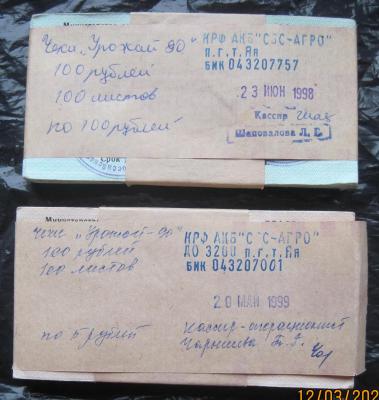 Министерство
Чеки „Урожай 90"
100 рублей
100 листов
по 100 рублей
КРФ АКБ"СБС-АГРО"
П.Г.Т.Яя
БИК 043207757
23 ИЮН 1998
Кассир
Шаповалова Л. Е.
Срок
Министерство
Чеки „Урожай-90"
100 рублей
100 листов
по 5 рублей
КРФ АКБ"СБС-АГРО"
ДО 3200 П.Г.Т.Яя
БИК 043207001
20 МАЙ 1999
Кассир-операционист
12/03/202